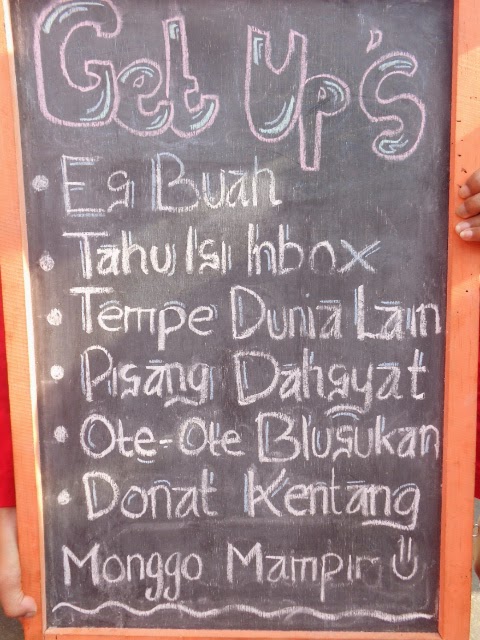 Get Up's
Es Buah
Tahu Isi Inbox
Tempe Dunia Lain
Pisang Dahsyat
Ote-Ote Blusukan
Donat Kentang
Monggo Mampir